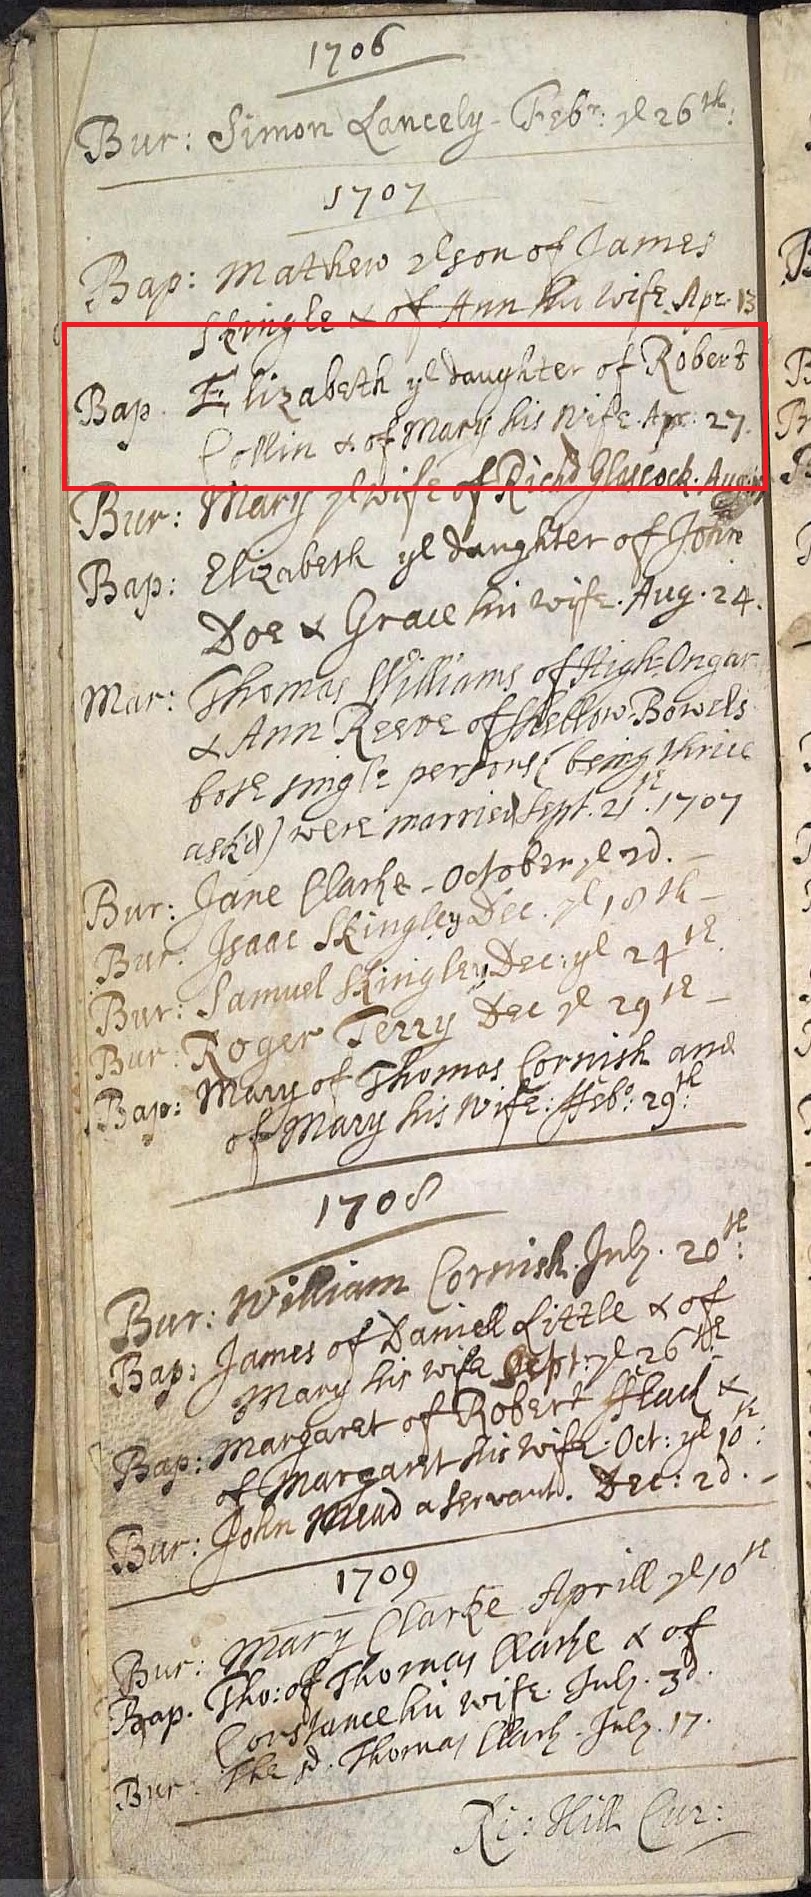 1706
Bur: Simon Lancely - Febr: ye 26th:
1707
Bap: Mathew ye son of James
Skingle & of Ann his wife. Apr. 13
Bap. Elizabeth ye daughter of Robert
Collin & of Mary his Wife. Apr. 27.
Bur: Mary ye wife of Richd Glascock. Aug:
Bap: Elizabeth ye daughter of John
Doe & Grace his wife. Aug. 24.
Mar: Thomas Williams of High-Ongar
& Ann Reeve of Shellow-Bowels
both single persons (being thrice
ask'd) were married Sept. 21st. 1707
Bur: Jane Clarke - October ye 2d. -
Bur: Isaac Skingley Dec. ye 18th -
Bur: Samuel Skingley Dec: ye 24th.
Bur: Roger Terry Dec ye 29th -
Bap: Mary of Thomas Cornish and
of Mary his Wife: ffeb: 29th:
1708
Bur: William Cornish. July. 20th:
Bap: James of Daniel Little & of
Mary his wife Sept: ye 26th:
Bap: Margaret of Robert &
of Margaret his Wife: Oct: ye 10th:
Bur: John Mead a servant. Dec: 2d. -
1709
Bur: Mary Clarke Aprill ye 10th
Bap. Tho: of Thomas Clarke & of
Constance his wife. July. 3d.
Bur: The sd. Thomas Clark - July. 17.
Ri: Hill Cur: